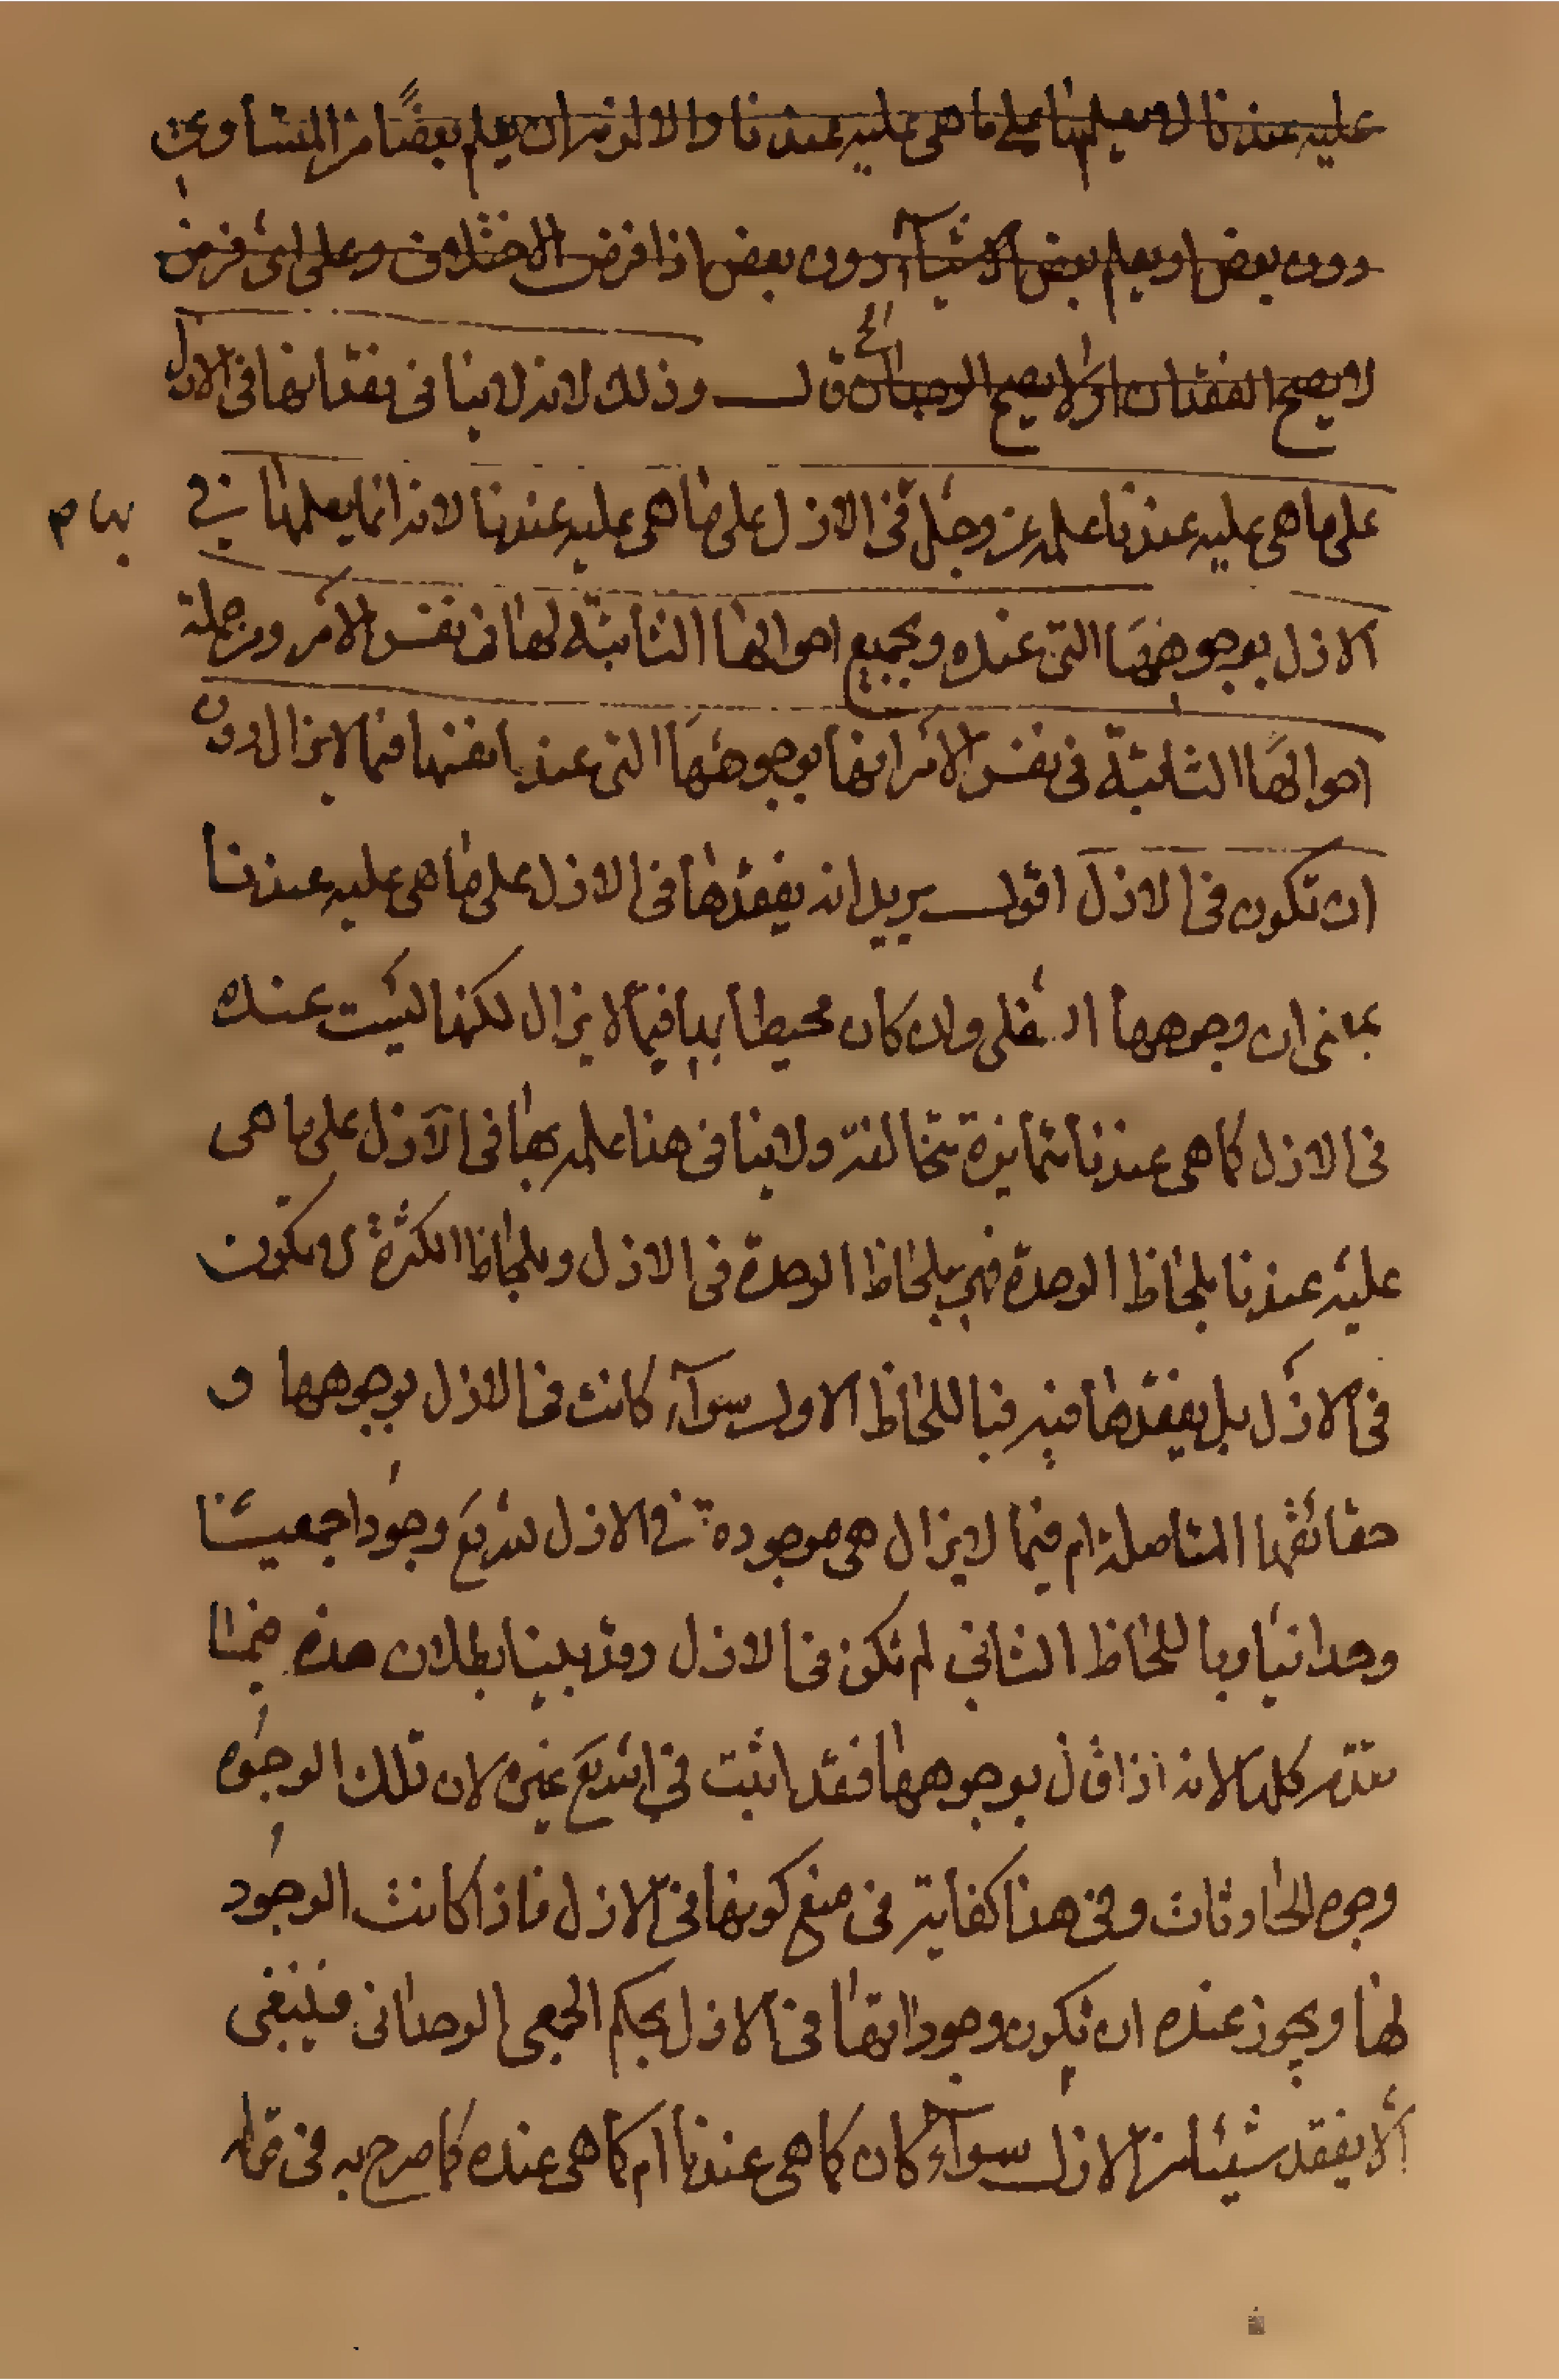 عليه عندنا لا يعلمها على ما هى عليه عندنا والا لزم ان يعلم بعضا من المتساوى
دون بعض او يعلم بعض الاشيآء دون بعض اذا فرض الاختلاف وعلى اى فرض
لا يصح الفقدان اولا يصح الوجدان قال وذلك لانه لا ينافى فقدانها فى الازل
على ما هى عليه عندنا علمه عز وجل فى الازل على ما هى عليه عندنا لانه انما يعلمها فى
بها م
الازل بوجوهها التى عنده وبجميع احوالها الثابتة لها فى نفس الامر ومن جملة
احوالها الثابتة فى نفس الامر انها بوجوهها التى عند انفسها فيما لا يزال دون
ان تكون فى الازل اقول يريد انه يفقدها فى الازل على ما هى عليه عندنا
بمعنى ان وجوهها السفلى وان كان محيطا بها فيما لا يزال لكنها ليست عنده
فى الازل كما هى عندنا متمايزة متخالفة ولا ينافى هذا علمه بها فى الازل على ما هى
عليه عندنا بلحاظ الوحدة فهى بلحاظ الوحدة فى الازل وبلحاظ الكثرة لا يكون
فى الازل بل يفقدها فيه فبا للحاظ الاول سوآء كانت فى الازل بوجوهها و
حقائقها المتاصلة ام فيما لا يزال هى موجودة فى الازل لله تع وجودا جمعيا
وحدانيا وبا للحاظ الثانى لم تكن فى الازل وقد بينا بطلان هذه فيما
تقدم كلها لانه اذا قال بوجوهها فقد اثبت فى الله تع غيره لان تلك الوجوه
وجوه الحادثات وفى هذا كفاية فى منع كونها فى الازل فاذا كانت الوجود
لها ويجوز عنده ان يكون وجوداتها فى الازل بحكم الجمعى الوحدانى فينبغى
ألا يفقد شيئا من الازل سوآء كان كما هى عندنا ام كما هى عنده كما صرح به فى